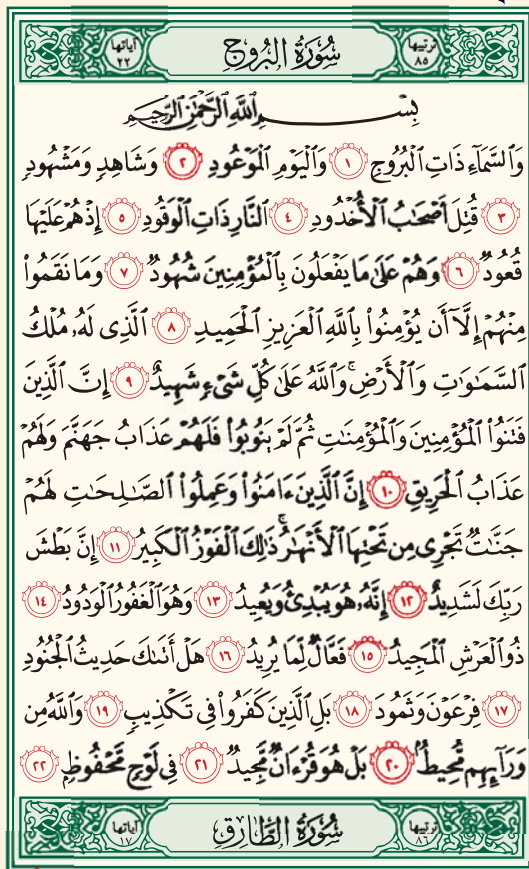 ترتيبها ٨٥ سُورَةُ البُرُوج آياتها ٢٢
بِسْمِ اللَّهِ الرَّحْمَٰنِ الرَّحِيمِ
وَالسَّمَآءِ ذَاتِ الْبُرُوجِ ١ وَالْيَوْمِ الْمَوْعُودِ ٢ وَشَاهِدٍ وَمَشْهُودٍ
٣ قُتِلَ أَصْحَٰبُ الْأُخْدُودِ ٤ النَّارِ ذَاتِ الْوَقُودِ ٥ إِذْ هُمْ عَلَيْهَا
قُعُودٌ ٦ وَهُمْ عَلَىٰ مَا يَفْعَلُونَ بِالْمُؤْمِنِينَ شُهُودٌ ٧ وَمَا نَقَمُوا۟
مِنْهُمْ إِلَّآ أَن يُؤْمِنُوا۟ بِاللَّهِ الْعَزِيزِ الْحَمِيدِ ٨ الَّذِى لَهُۥ مُلْكُ
السَّمَٰوَٰتِ وَالْأَرْضِ ۚ وَاللَّهُ عَلَىٰ كُلِّ شَىْءٍ شَهِيدٌ ٩ إِنَّ الَّذِينَ
فَتَنُوا۟ الْمُؤْمِنِينَ وَالْمُؤْمِنَٰتِ ثُمَّ لَمْ يَتُوبُوا۟ فَلَهُمْ عَذَابُ جَهَنَّمَ وَلَهُمْ
عَذَابُ الْحَرِيقِ ١٠ إِنَّ الَّذِينَ ءَامَنُوا۟ وَعَمِلُوا۟ الصَّٰلِحَٰتِ لَهُمْ
جَنَّٰتٌ تَجْرِى مِن تَحْتِهَا الْأَنْهَٰرُ ۚ ذَٰلِكَ الْفَوْزُ الْكَبِيرُ ١١ إِنَّ بَطْشَ
رَبِّكَ لَشَدِيدٌ ١٢ إِنَّهُۥ هُوَ يُبْدِئُ وَيُعِيدُ ١٣ وَهُوَ الْغَفُورُ الْوَدُودُ ١٤
ذُو الْعَرْشِ الْمَجِيدُ ١٥ فَعَّالٌ لِّمَا يُرِيدُ ١٦ هَلْ أَتَىٰكَ حَدِيثُ الْجُنُودِ
١٧ فِرْعَوْنَ وَثَمُودَ ١٨ بَلِ الَّذِينَ كَفَرُوا۟ فِى تَكْذِيبٍ ١٩ وَاللَّهُ مِن
وَرَآئِهِم مُّحِيطٌۢ ٢٠ بَلْ هُوَ قُرْءَانٌ مَّجِيدٌ ٢١ فِى لَوْحٍ مَّحْفُوظٍۭ ٢٢
ترتيبها ٨٦ سُورَةُ الطَّارِقِ آياتها ١٧